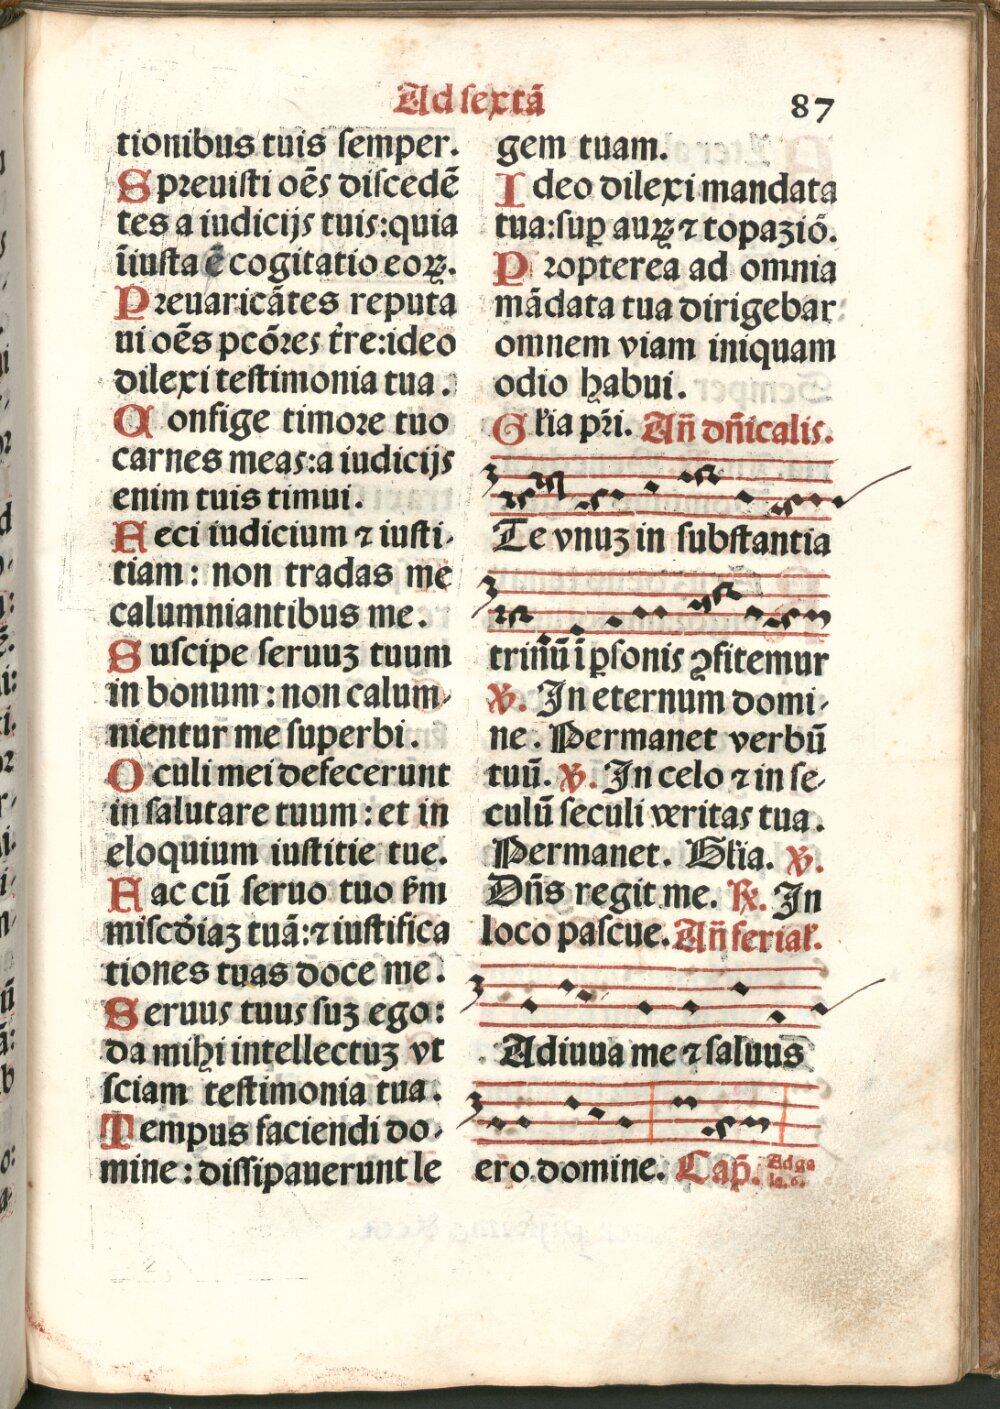 Ad sextā
87
tionibus tuis semper.
Spreuisti oēs discedē
tes a iudicijs tuis:quia
īiusta ē cogitatio eoꝝ.
Preuaricātes reputa
ui oēs pcōres tr̄e:ideo
dilexi testimonia tua.
Confige timore tuo
carnes meas:a iudicijs
enim tuis timui.
Feci iudicium ⁊ iusti-
tiam: non tradas me
calumniantibus me.
Suscipe seruuꝫ tuum
in bonum: non calum-
nientur me superbi.
Oculi mei defecerunt
in salutare tuum: et in
eloquium iustitie tue.
Fac cū seruo tuo ẜm
misc̄diaꝫ tuā:⁊ iustifica
tiones tuas doce me.
Seruus tuus suꝫ ego:
da mihi intellectuꝫ vt
sciam testimonia tua.
Tempus faciendi do-
mine: dissipauerunt le
gem tuam.
Ideo dilexi mandata
tua:suꝑ auꝝ ⁊ topaziō.
Propterea ad omnia
mādata tua dirigebar
omnem viam iniquam
odio habui.
Gl̄ia pr̄i. Añ dñicalis.
Te vnuꝫ in substantia
trinū ī ꝑsonis ꝯfitemur
℣. In eternum domi-
ne. Permanet verbū
tuū. ℣. In celo ⁊ in se-
culū seculi veritas tua.
Permanet. Gl̄ia. ℣.
Dñs regit me. ℟. In
loco pascue. Añ ferial̄.
Adiuua me ⁊ saluus
ero domine. Cap̄. Ad ga
la. 6.